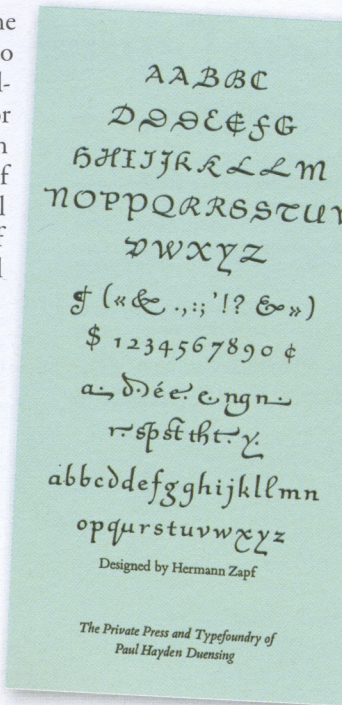 AABBC
DDDEEFG
HHIJJKKLLLM
NOPPQRRSSTUV
VWXYZ
& .,:; ' !? &
$ 1234567890 ¢
a. d. é e. e n g n.
r. sp st th t. y.
abbcddefgghijkllmn
opqurstuvwxyz
Designed by Hermann Zapf
The Private Press and Typefoundry of
Paul Hayden Duensing